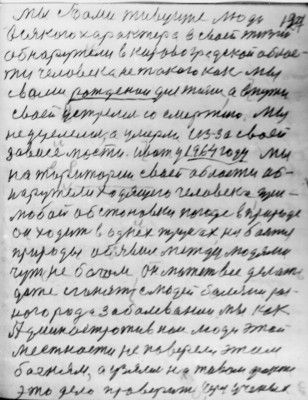 Мы Вами живущие люди 127
всякого характера в своей жизни
обнаружели в кировоградской облас
ти человека не такого как мы
свами рождении для жизни, а в пути
своей встретели со смертию. Мы
не уцелели, а умерли из-за своей
зависемости. вот у 1964 году мы
на територии своей области об
наружели ходящего человека зи
мовой обстоновки погоде в природе
он ходит в одних трусах на власти
природы обявил между людями
чуть не богом он может все делать
даже сгонять с людей болезни раз
ного рода заболевании мы как
Администротивнои люди этой
местности не поверели этим
басням, а узяли на таком факте
это дело проверить через ученых